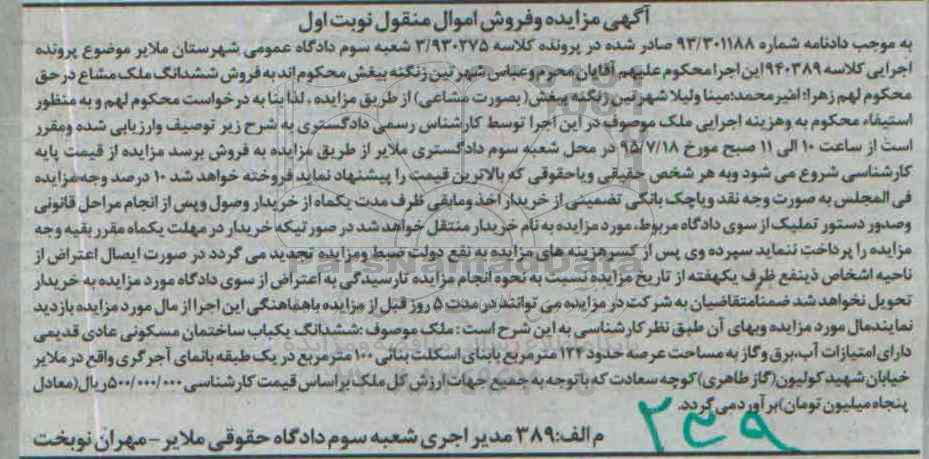 آگهی مزایده وفروش اموال منقول نوبت اول
به موجب دادنامه شماره ۹۳/۳۰۱۱۸۸ صادر شده در پرونده کلاسه ۳/۹۳۰۲۷۵ شعبه سوم دادگاه عمومی شهرستان ملایر موضوع پرونده
اجرایی کلاسه ۹۴۰۳۸۹ این اجرا محکوم علیهم آقایان محرم وعباس شهرتین زنگنه بیغش محکوم اند به فروش ششدانگ ملک مشاع در حق
محکوم لهم زهرا؛ اشیر محمد؛ مینا ولیلا شهرتین زنگنه بیغش (بصورت مشاعی) از طریق مزایده ، لذا بنا به درخواست محکوم لهم و به منظور
استیفاء محکوم به وهزینه اجرایی ملک موصوف در این اجرا توسط کارشناس رسمی دادگستری به شرح زیر توصیف وارزیابی شده ومقرر
است از ساعت ۱۰ الی ۱۱ صبح مورخ ۹۵/۷/۱۸ در محل شعبه سوم دادگستری ملایر از طریق مزایده به فروش برسد مزایده از قیمت پایه
کارشناسی شروع می شود وبه هر شخص حقیقی ویاحقوقی که بالاترین قیمت را پیشنهاد نماید فروخته خواهد شد ۱۰ درصد وجه مزایده
فی المجلس به صورت وجه نقد ویاچک بانکی تضمینی از خریدار اخذ ومابقی ظرف مدت یکماه از خریدار وصول وپس از انجام مراحل قانونی
وصدور دستور تملیک از سوی دادگاه مربوط، مورد مزایده به نام خریدار منتقل خواهد شد در صورتیکه خریدار در مهلت یکماه مقرر بقیه وجه
مزایده را پرداخت ننماید سپرده وی پس از کسر هزینه های مزایده به نفع دولت ضبط ومزایده تجدید می گردد در صورت ایصال اعتراض از
ناحیه اشخاص ذینفع ظرف یکهفته از تاریخ مزایده نسبت به نحوه انجام مزایده تا رسیدگی به اعتراض از سوی دادگاه مورد مزایده به خریدار
تحویل نخواهد شد ضمناً متقاضیان به شرکت در مزایده می توانند در مدت ۵ روز قبل از مزایده باهماهنگی این اجرا از مال مورد مزایده بازدید
نمایند مال مورد مزایده وبهای آن طبق نظر کارشناسی به این شرح است : ملک موصوف :ششدانگ یکباب ساختمان مسکونی عادی قدیمی
دارای امتیازات آب، برق و گاز به مساحت عرصه حدود ۱۲۴ مترمربع بابنای اسکلت بنائی ۱۰۰ مترمربع در یک طبقه بانمای آجر گری واقع در ملایر
خیابان شهید کولیون (گاز طاهری) کوچه سعادت که با توجه به جمیع جهات ارزش کل ملک براساس قیمت کارشناسی ۵۰۰/۰۰۰/۰۰۰ ریال (معادل
پنجاه میلیون تومان) برآورد می گردد.
م الف: ۳۸۹ مدیر اجری شعبه سوم دادگاه حقوقی ملایر – مهران نوبخت
۲۳۹